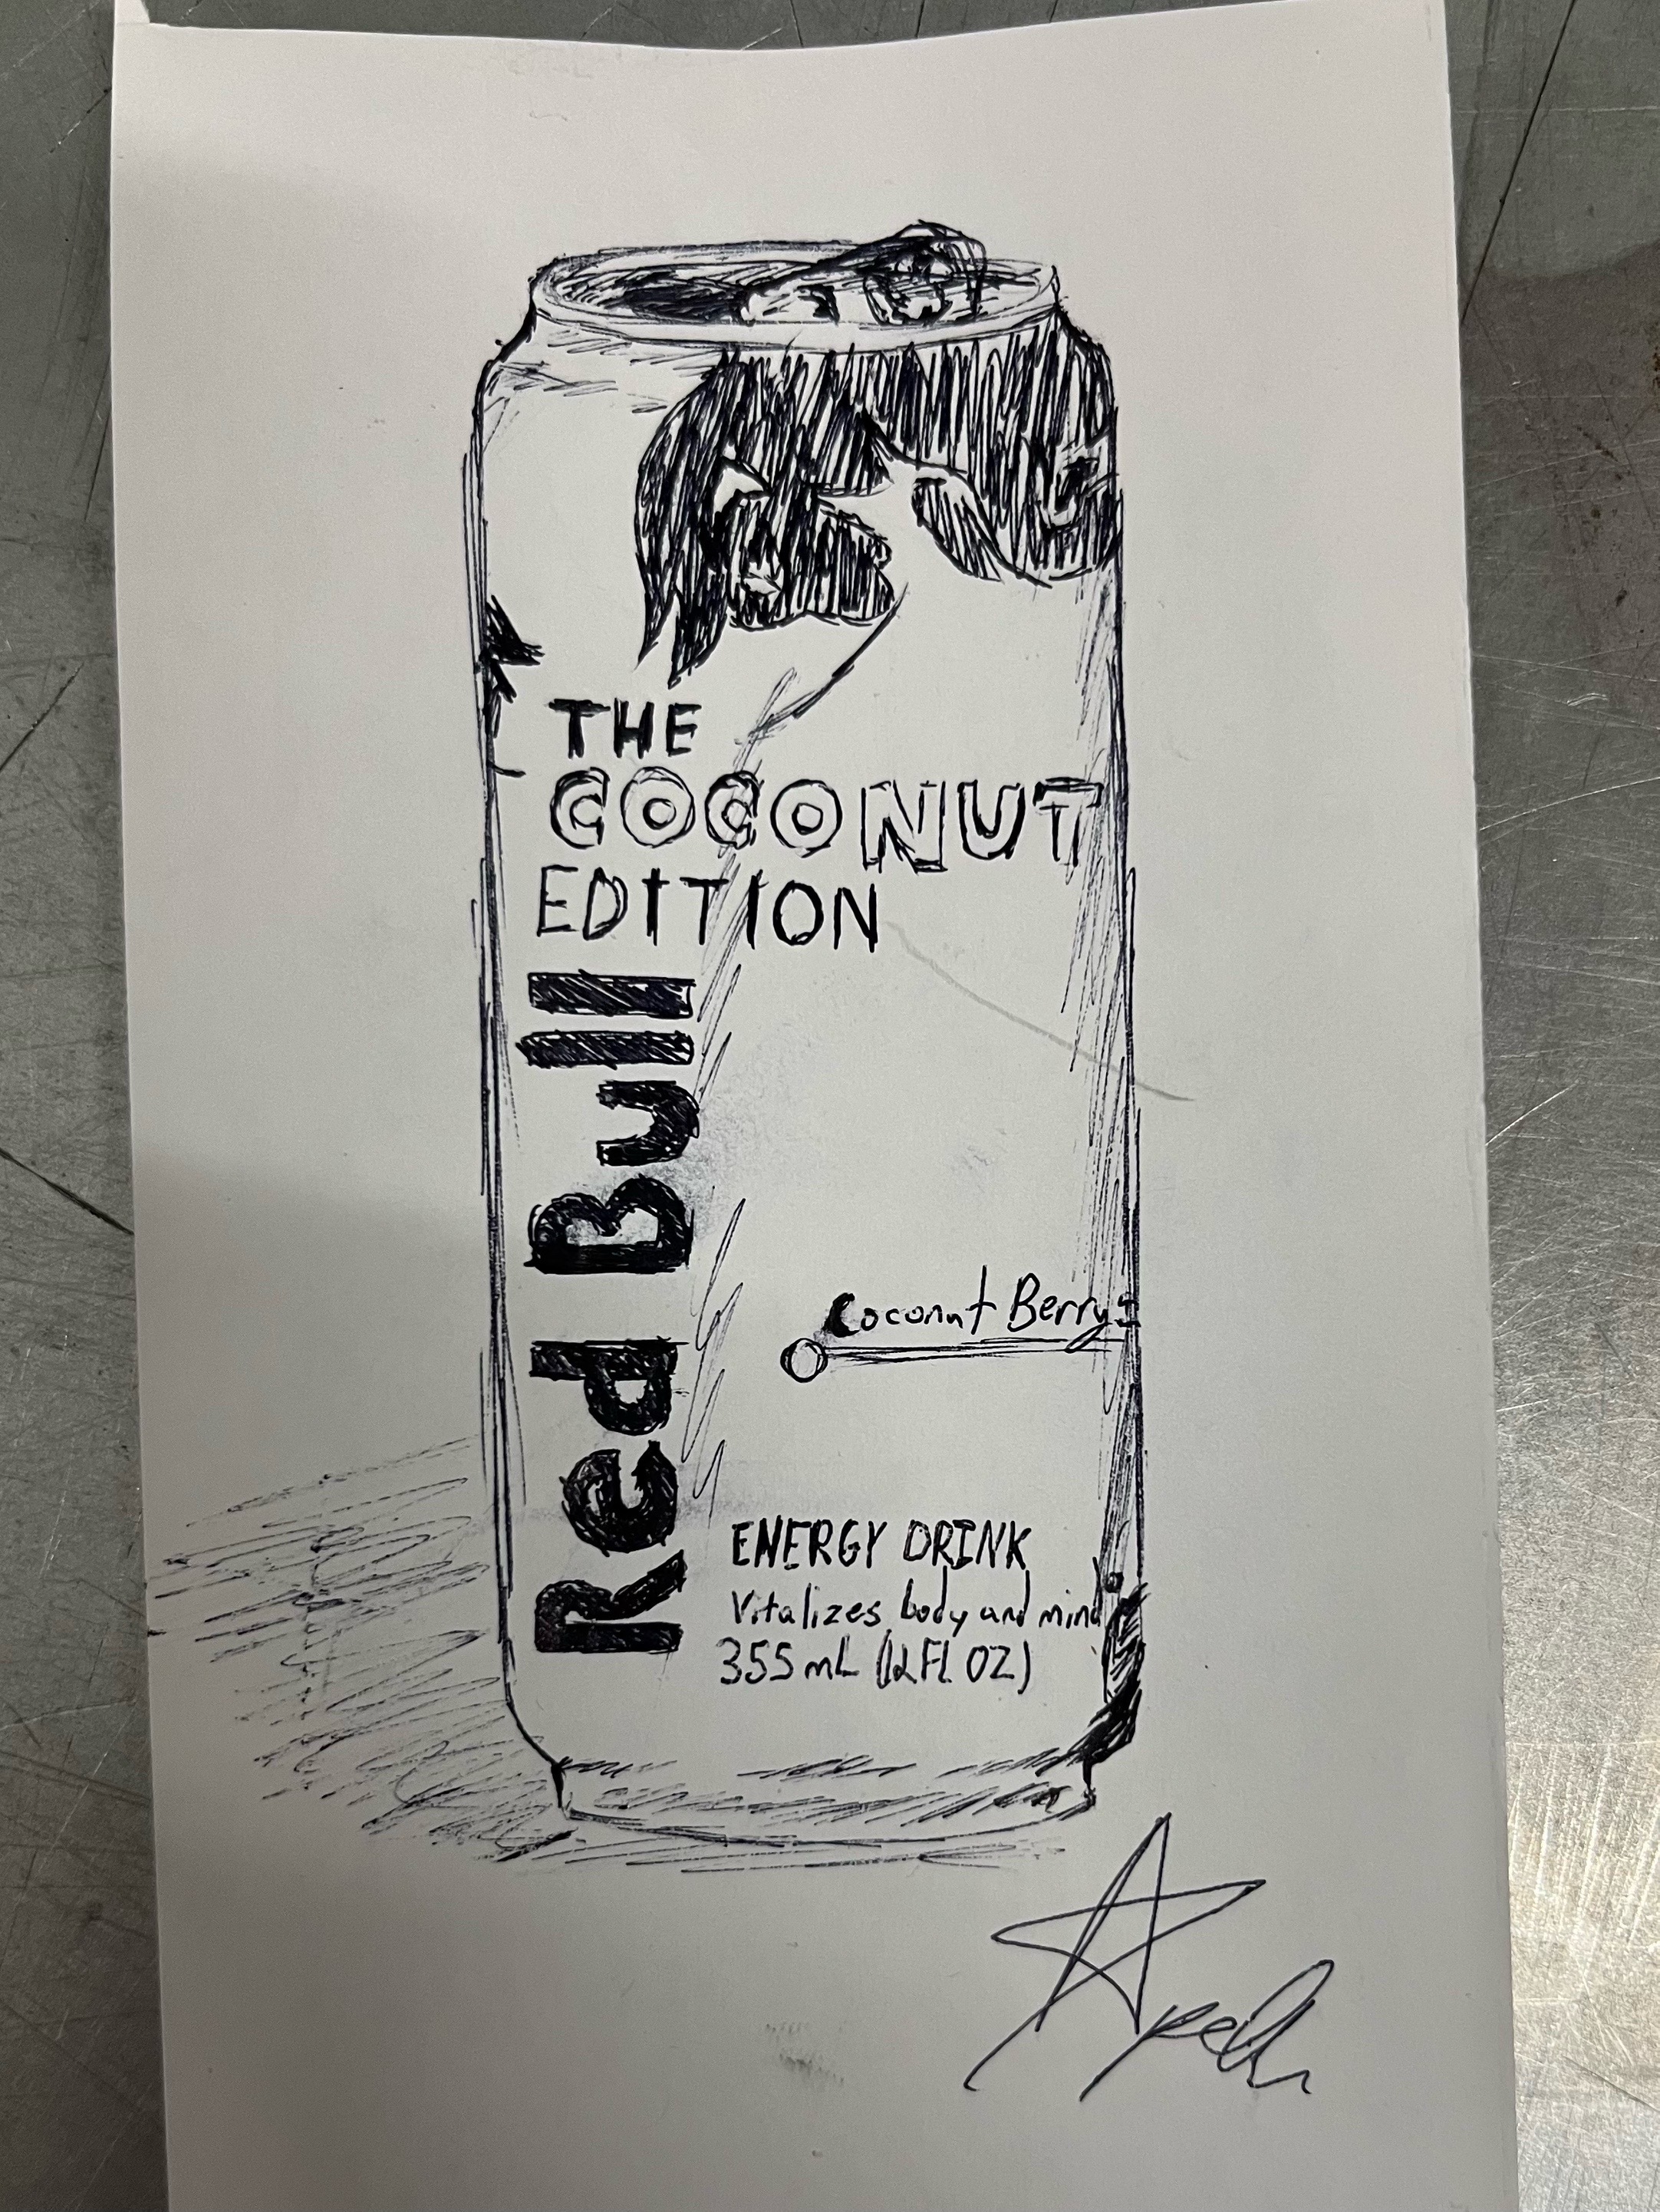 THE
COCONUT
EDITION
Red Bull
Coconut Berry
ENERGY DRINK
Vitalizes body and mind
355 mL (12 FL OZ)